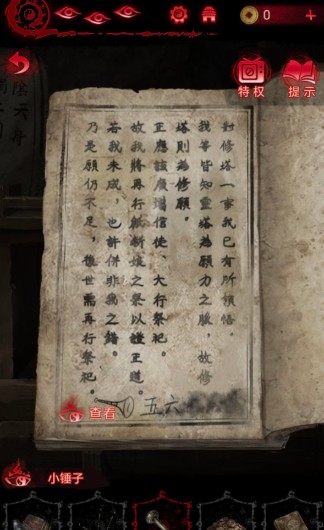 0
特权
提示
對修塔一事我已有所領悟。
我等皆知靈塔為願力之脈，故修
塔則為修願。
正應該廣增信徒、大行祭祀。
故我將再行紙新娘之祭以證王道。
若我未成，也許併非我之錯。
乃是願仍不足，後世需再行祭祀。
查看
五六
小锤子